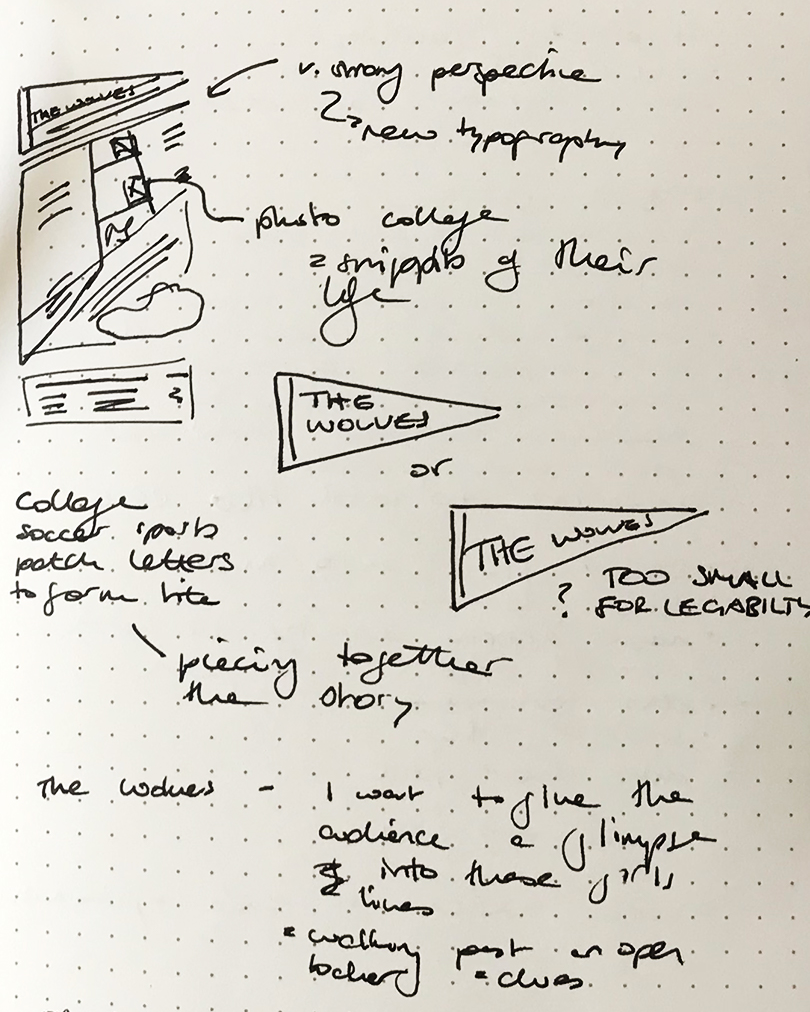 THE WOLVES
v. strong perspective
new typography
photo collage
= snippets of their
life
THE
WOLVES
or
THE WOLVES
? TOO SMALL
FOR LEGABILTY
collage
soccer sports
patch letters
to form title
piecing together
the story
The Wolves - I want to give the
audience a glimpse
into these girls
lives
= walking past an open
locker = clues